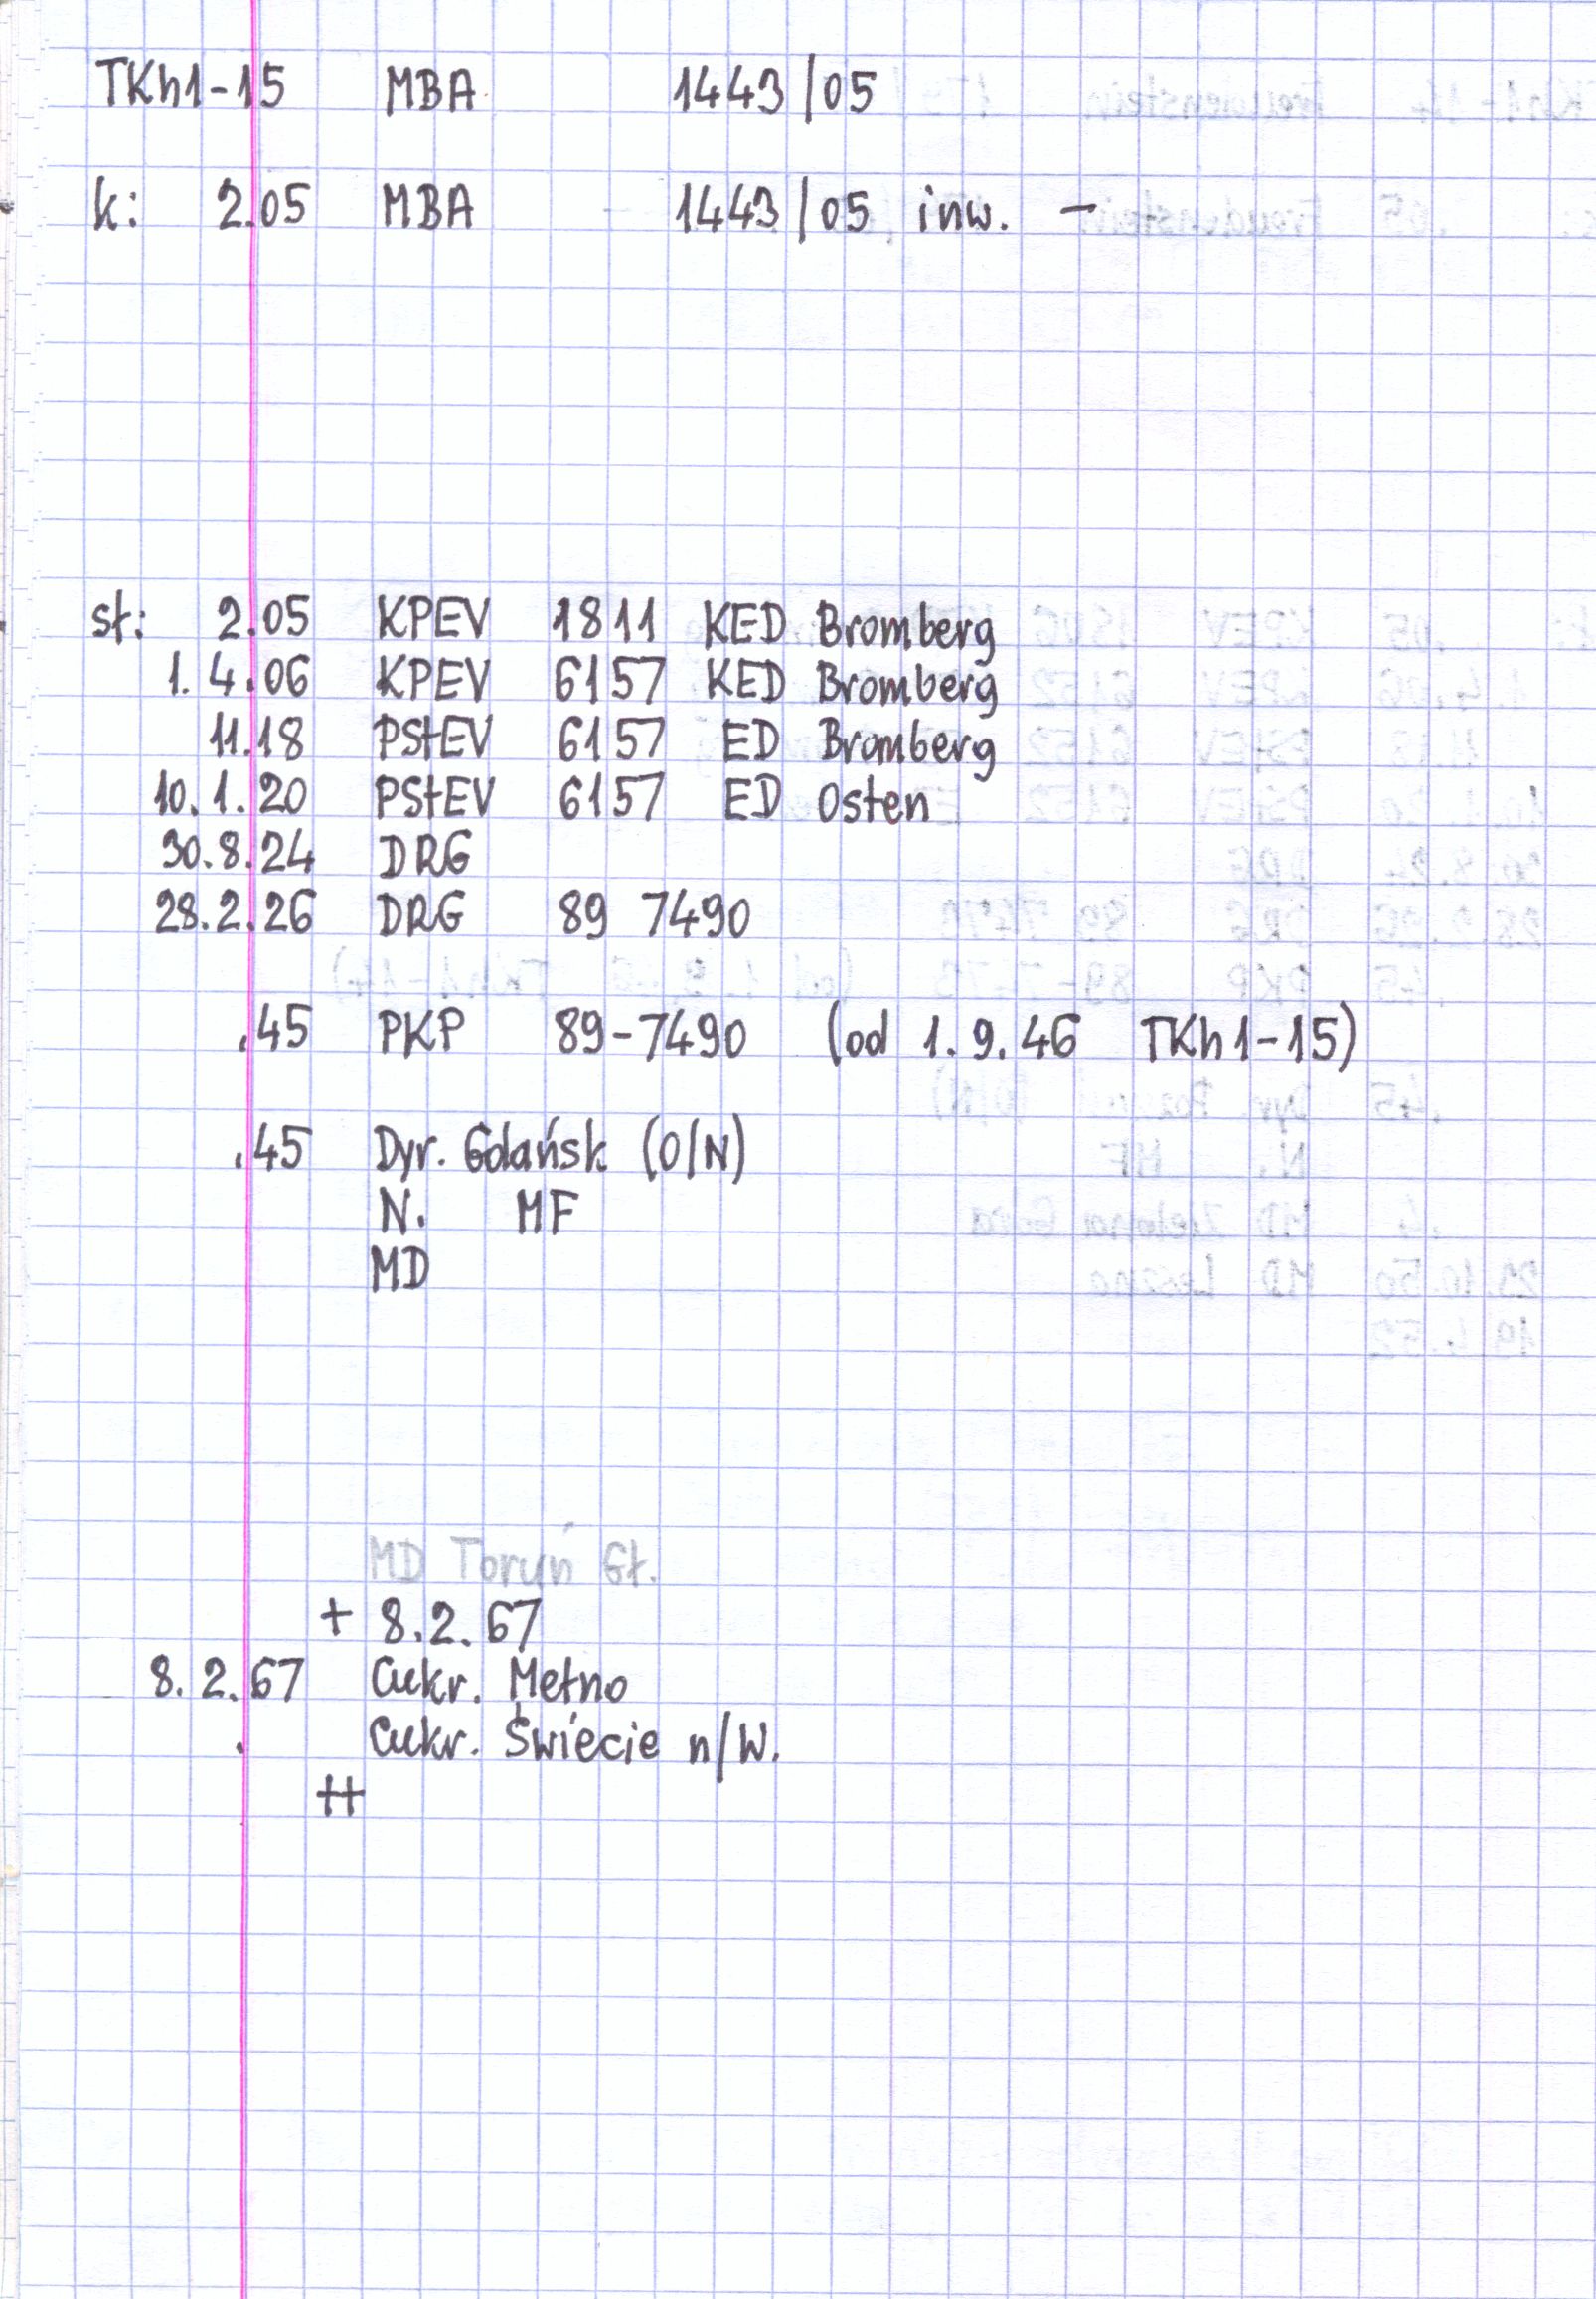 TKh1-15 MBA 1443/05
k: 2.05 MBA 1443/05 inw. -
st: 2.05 KPEV 1811 KED Bromberg
1.4.06 KPEV 6157 KED Bromberg
11.18 PStEV 6157 ED Bromberg
10.1.20 PStEV 6157 ED Osten
30.8.24 DRG
28.2.26 DRG 89 7490
.45 PKP 89-7490 (od 1.9.46 TKh1-15)
.45 Dyr. Gdańsk (O/N)
N. MF
MD
MD Toruń Gł.
+ 8.2.67
8.2.67 Cukr. Mełno
. Cukr. Świecie n/W.
++